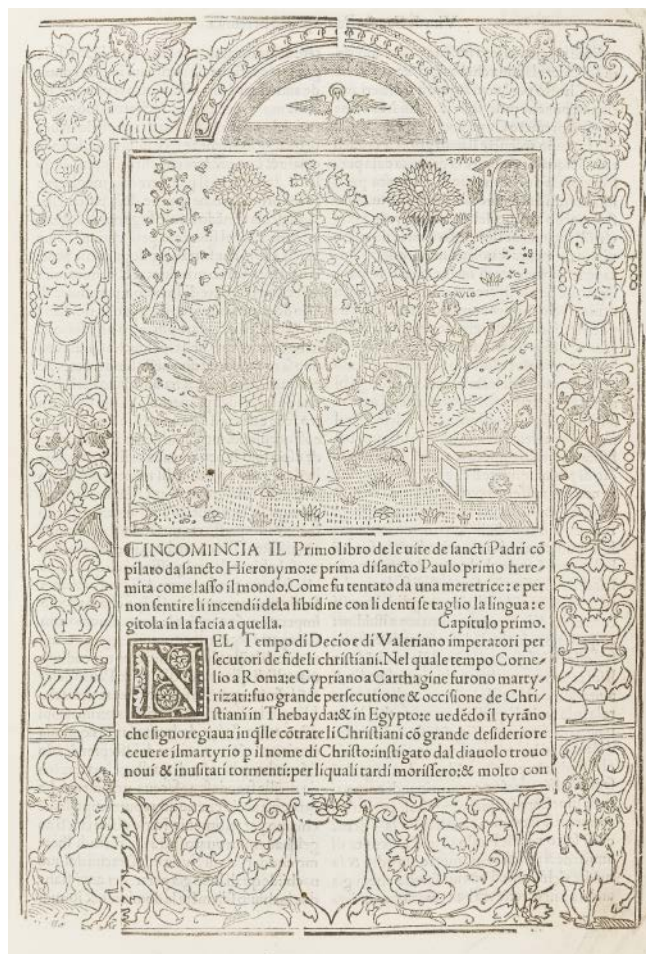 S. PAVLO
S. PAVLO
❡INCOMINCIA IL Primo libro de le uite de sancti Padri cō
pilato da sancto Hieronymo: e prima di sancto Paulo primo here⸗
mita come lasso il mondo. Come fu tentato da una meretrice: e per
non sentire li incendii dela libidine con li denti se taglio la lingua: e
gitola in la facia a quella. Capitulo primo.
NEL Tempo di Decio e di Valeriano imperatori per
secutori de fideli christiani. Nel quale tempo Corne⸗
lio a Roma: e Cypriano a Carthagine furono marty⸗
rizati: fuo grande persecutione & occisione de Chri⸗
stiani in Thebayda: & in Egypto: e uedēdo il tyrāno
che signoregiaua in q̄lle cōtrate li Christiani cō grande desiderio re
ceuere il martyrio p il nome di Christo: instigato dal diauolo trouo
noui & inusitati tormenti: per li quali tardi morissero: & molto con